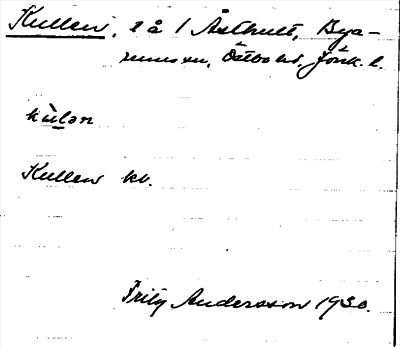 Kullen, l å 1 Åsthult, Bya-
rums sn, Östbo hd, Jönk. l.
kùlən
Kullen kb.
Fritz Andersson 1930.